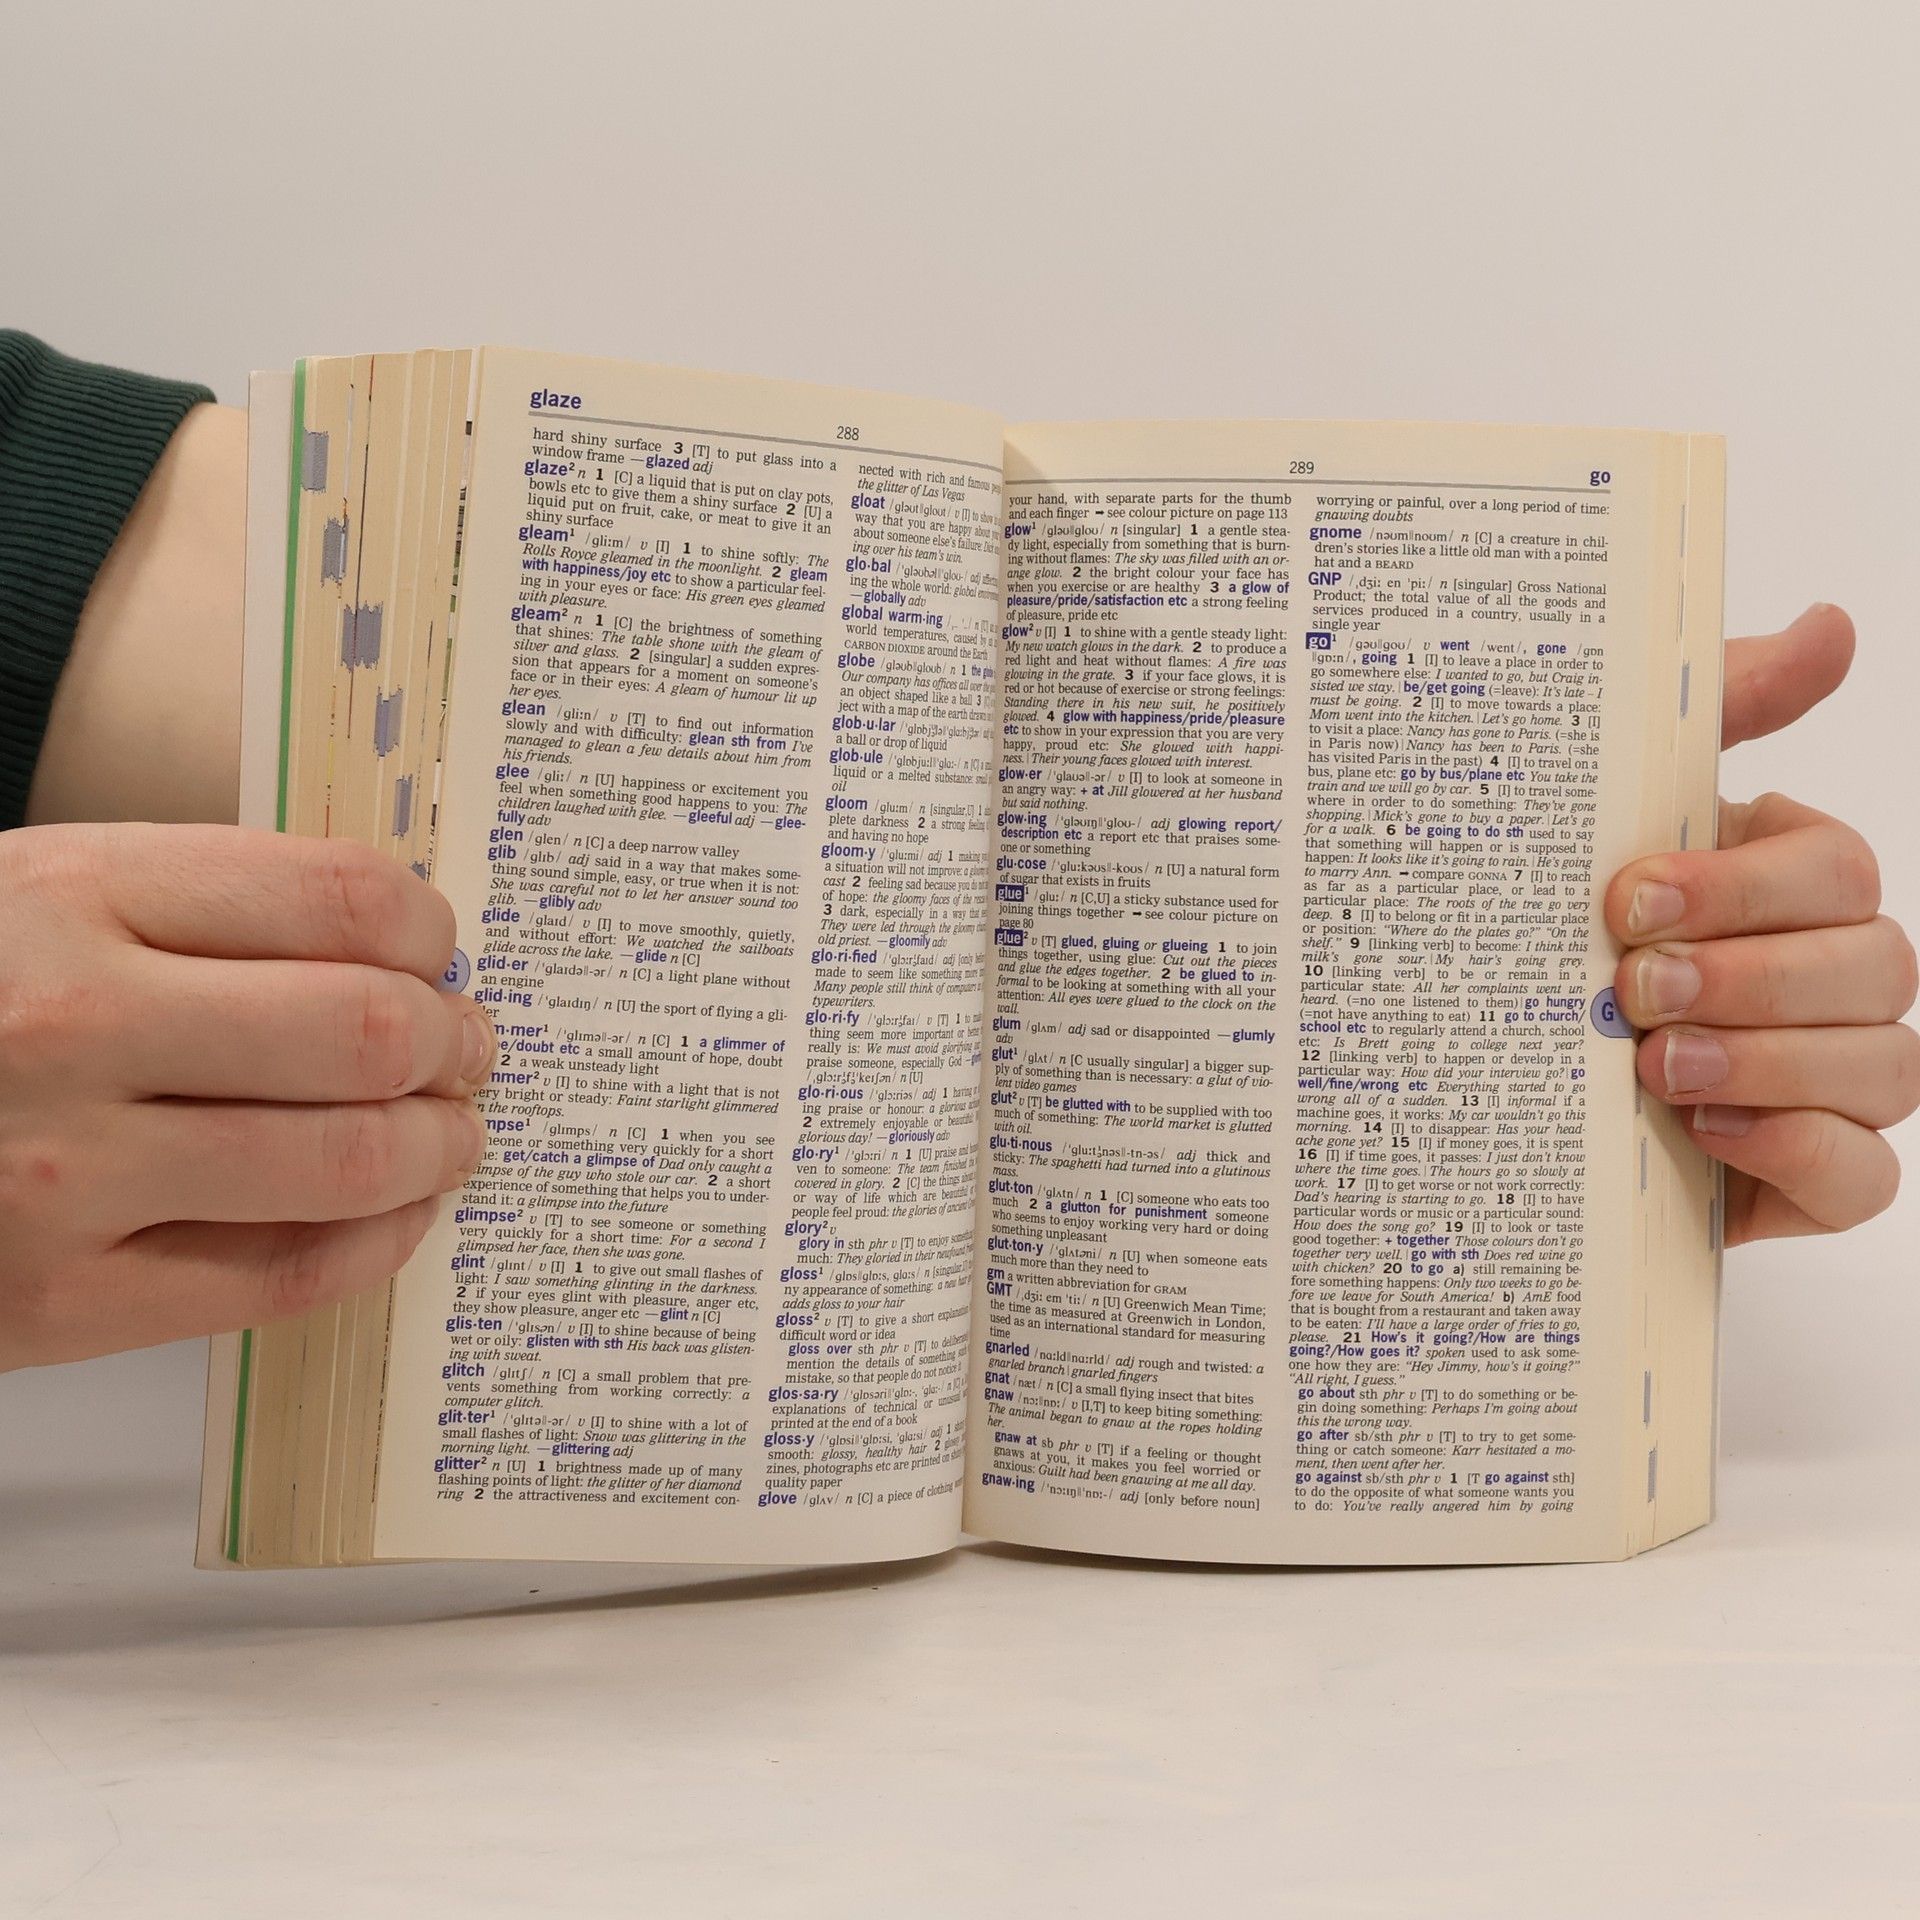 glaze
288
hard shiny surface 3 [T] to put glass into a
window frame —glazed adj
glaze² n 1 [C] a liquid that is put on clay pots,
bowls etc to give them a shiny surface 2 [U] a
liquid put on fruit, cake, or meat to give it an
shiny surface
gleam¹ /gliːm/ v [I] 1 to shine softly: The
Rolls Royce gleamed in the moonlight. 2 gleam
with happiness/joy etc to show a particular feel-
ing in your eyes or face: His green eyes gleamed
with pleasure.
gleam² n 1 [C] the brightness of something
that shines: The table shone with the gleam of
silver and glass. 2 [singular] a sudden expres-
sion that appears for a moment on someone's
face or in their eyes: A gleam of humour lit up
her eyes.
glean /gliːn/ v [T] to find out information
slowly and with difficulty: glean sth from I've
managed to glean a few details about him from
his friends.
glee /gliː/ n [U] happiness or excitement you
feel when something good happens to you: The
children laughed with glee. —gleeful adj —glee-
fully adv
glen /glen/ n [C] a deep narrow valley
glib /glɪb/ adj said in a way that makes some-
thing sound simple, easy, or true when it is not:
She was careful not to let her answer sound too
glib. —glibly adv
glide /glaɪd/ v [I] to move smoothly, quietly,
and without effort: We watched the sailboats
glide across the lake. —glide n [C]
glid·er /ˈglaɪdəǁ-ər/ n [C] a light plane without
an engine
glid·ing /ˈglaɪdɪŋ/ n [U] the sport of flying a gli-
/ˈglɪməǁ-ər/ n [C] 1 a glimmer of
etc a small amount of hope, doubt
2 a weak unsteady light
v [I] to shine with a light that is not
bright or steady: Faint starlight glimmered
the rooftops.
/glɪmps/ n [C] 1 when you see
or something very quickly for a short
get/catch a glimpse of Dad only caught a
of the guy who stole our car. 2 a short
experience of something that helps you to under-
stand it: a glimpse into the future
glimpse² v [T] to see someone or something
very quickly for a short time: For a second I
glimpsed her face, then she was gone.
glint /glɪnt/ v [I] 1 to give out small flashes of
light: I saw something glinting in the darkness.
2 if your eyes glint with pleasure, anger etc,
they show pleasure, anger etc —glint n [C]
glis·ten /ˈglɪsən/ v [I] to shine because of being
wet or oily: glisten with sth His back was glisten-
ing with sweat.
glitch /glɪtʃ/ n [C] a small problem that pre-
vents something from working correctly: a
computer glitch.
glit·ter¹ /ˈglɪtəǁ-ər/ v [I] to shine with a lot of
small flashes of light: Snow was glittering in the
morning light. —glittering adj
glitter² n [U] 1 brightness made up of many
flashing points of light: the glitter of her diamond
ring 2 the attractiveness and excitement con-
nected with rich and famous
the glitter of Las Vegas
gloat /gləʊtǁgloʊt/ v [I] to show in
way that you are happy about
about someone else's failure:
ing over his team's win.
glo·bal /ˈgləʊbəlǁˈgloʊ-/ adj
ing the whole world: global
—globally adv
global warm·ing n [U]
world temperatures, caused by
CARBON DIOXIDE around the Earth
globe /gləʊbǁgloʊb/ n 1
Our company has offices all over the
an object shaped like a ball 3
ject with a map of the earth
glob·u·lar
a ball or drop of liquid
glob·ule /ˈglɒbjuːlǁˈglɑː-/ n [C]
liquid or a melted substance:
oil
gloom /gluːm/ n [singular,U] 1
plete darkness 2 a strong feeling
and having no hope
gloom·y /ˈgluːmi/ adj 1 making
a situation will not improve:
cast 2 feeling sad because you do
of hope: the gloomy faces of the
3 dark, especially in a way that
They were led through the gloomy
old priest. —gloomily adv
glo·ri·fied /ˈglɔːrɪfaɪd/ adj [only
made to seem like something more
Many people still think of computers
typewriters.
glo·ri·fy /ˈglɔːrɪfaɪ/ v [T] 1 to
thing seem more important or
really is: We must avoid glorifying
praise someone, especially God
n [U]
glo·ri·ous /ˈglɔːriəs/ adj 1 having
ing praise or honour: a glorious
2 extremely enjoyable or
glorious day! —gloriously adv
glo·ry¹ /ˈglɔːri/ n 1 [U] praise and
ven to someone: The team finished
covered in glory. 2 [C] the things
or way of life which are
people feel proud: the glories of ancient
glory² v
glory in sth phr v [T] to enjoy
much: They gloried in their newfound
gloss¹ /glɒsǁglɔːs, glɑːs/ n [singular,
ny appearance of something: a new
adds gloss to your hair
gloss² v [T] to give a short explanation
difficult word or idea
gloss over sth phr v [T] to
mention the details of something
mistake, so that people do not notice it
glos·sa·ry /ˈglɒsəriǁˈglɔː-, ˈglɑː-/ n [C]
explanations of technical or unusual
printed at the end of a book
gloss·y /ˈglɒsiǁˈglɔːsi, ˈglɑːsi/ adj 1
smooth: glossy, healthy hair 2
zines, photographs etc are printed on
quality paper
glove /glʌv/ n [C] a piece of clothing
G
289
go
your hand, with separate parts for the thumb
and each finger ➞ see colour picture on page 113
glow¹ /gləʊǁgloʊ/ n [singular] 1 a gentle stea-
dy light, especially from something that is burn-
ing without flames: The sky was filled with an or-
ange glow. 2 the bright colour your face has
when you exercise or are healthy 3 a glow of
pleasure/pride/satisfaction etc a strong feeling
of pleasure, pride etc
glow² v [I] 1 to shine with a gentle steady light:
My new watch glows in the dark. 2 to produce a
red light and heat without flames: A fire was
glowing in the grate. 3 if your face glows, it is
red or hot because of exercise or strong feelings:
Standing there in his new suit, he positively
glowed. 4 glow with happiness/pride/pleasure
etc to show in your expression that you are very
happy, proud etc: She glowed with happi-
ness. | Their young faces glowed with interest.
glow·er /ˈglaʊəǁ-ər/ v [I] to look at someone in
an angry way: + at Jill glowered at her husband
but said nothing.
glow·ing /ˈgləʊɪŋǁˈgloʊ-/ adj glowing report/
description etc a report etc that praises some-
one or something
glu·cose /ˈgluːkəʊsǁ-koʊs/ n [U] a natural form
of sugar that exists in fruits
glue¹ /gluː/ n [C,U] a sticky substance used for
joining things together ➞ see colour picture on
page 80
glue² v [T] glued, gluing or glueing 1 to join
things together, using glue: Cut out the pieces
and glue the edges together. 2 be glued to in-
formal to be looking at something with all your
attention: All eyes were glued to the clock on the
wall.
glum /glʌm/ adj sad or disappointed —glumly
adv
glut¹ /glʌt/ n [C usually singular] a bigger sup-
ply of something than is necessary: a glut of vio-
lent video games
glut² v [T] be glutted with to be supplied with too
much of something: The world market is glutted
with oil.
glu·ti·nous /ˈgluːtɪnəsǁ-tn-əs/ adj thick and
sticky: The spaghetti had turned into a glutinous
mass.
glut·ton /ˈglʌtn/ n 1 [C] someone who eats too
much 2 a glutton for punishment someone
who seems to enjoy working very hard or doing
something unpleasant
glut·ton·y /ˈglʌtəni/ n [U] when someone eats
much more than they need to
gm a written abbreviation for GRAM
GMT /ˌdʒiː em ˈtiː/ n [U] Greenwich Mean Time;
the time as measured at Greenwich in London,
used as an international standard for measuring
time
gnarled /nɑːldǁnɑːrld/ adj rough and twisted: a
gnarled branch | gnarled fingers
gnat /næt/ n [C] a small flying insect that bites
gnaw /nɔːǁnɒː/ v [I,T] to keep biting something:
The animal began to gnaw at the ropes holding
her.
gnaw at sb phr v [T] if a feeling or thought
gnaws at you, it makes you feel worried or
anxious: Guilt had been gnawing at me all day.
gnaw·ing /ˈnɔːɪŋǁˈnɒː-/ adj [only before noun]
worrying or painful, over a long period of time:
gnawing doubts
gnome /nəʊmǁnoʊm/ n [C] a creature in chil-
dren's stories like a little old man with a pointed
hat and a BEARD
GNP /ˌdʒiː en ˈpiː/ n [singular] Gross National
Product; the total value of all the goods and
services produced in a country, usually in a
single year
go¹ /gəʊǁgoʊ/ v went /went/, gone /gɒn
ǁgɒːn/, going 1 [I] to leave a place in order to
go somewhere else: I wanted to go, but Craig in-
sisted we stay. | be/get going (=leave): It's late – I
must be going. 2 [I] to move towards a place:
Mom went into the kitchen. | Let's go home. 3 [I]
to visit a place: Nancy has gone to Paris. (=she is
in Paris now) | Nancy has been to Paris. (=she
has visited Paris in the past) 4 [I] to travel on a
bus, plane etc: go by bus/plane etc You take the
train and we will go by car. 5 [I] to travel some-
where in order to do something: They've gone
shopping. | Mick's gone to buy a paper. | Let's go
for a walk. 6 be going to do sth used to say
that something will happen or is supposed to
happen: It looks like it's going to rain. | He's going
to marry Ann. ➞ compare GONNA 7 [I] to reach
as far as a particular place, or lead to a
particular place: The roots of the tree go very
deep. 8 [I] to belong or fit in a particular place
or position: "Where do the plates go?" "On the
shelf." 9 [linking verb] to become: I think this
milk's gone sour. | My hair's going grey.
10 [linking verb] to be or remain in a
particular state: All her complaints went un-
heard. (=no one listened to them) | go hungry
(=not have anything to eat) 11 go to church/
school etc to regularly attend a church, school
etc: Is Brett going to college next year?
12 [linking verb] to happen or develop in a
particular way: How did your interview go? | go
well/fine/wrong etc Everything started to go
wrong all of a sudden. 13 [I] informal if a
machine goes, it works: My car wouldn't go this
morning. 14 [I] to disappear: Has your head-
ache gone yet? 15 [I] if money goes, it is spent
16 [I] if time goes, it passes: I just don't know
where the time goes. | The hours go so slowly at
work. 17 [I] to get worse or not work correctly:
Dad's hearing is starting to go. 18 [I] to have
particular words or music or a particular sound:
How does the song go? 19 [I] to look or taste
good together: + together Those colours don't go
together very well. | go with sth Does red wine go
with chicken? 20 to go a) still remaining be-
fore something happens: Only two weeks to go be-
fore we leave for South America! b) AmE food
that is bought from a restaurant and taken away
to be eaten: I'll have a large order of fries to go,
please. 21 How's it going?/How are things
going?/How goes it? spoken used to ask some-
one how they are: "Hey Jimmy, how's it going?"
"All right, I guess."
go about sth phr v [T] to do something or be-
gin doing something: Perhaps I'm going about
this the wrong way.
go after sb/sth phr v [T] to try to get some-
thing or catch someone: Karr hesitated a mo-
ment, then went after her.
go against sb/sth phr v 1 [T go against sth]
to do the opposite of what someone wants you
to do: You've really angered him by going
G